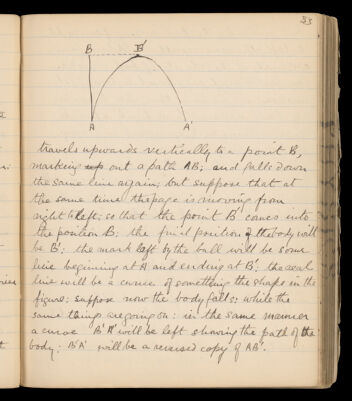 33
B B'
A A'
travels upwards vertically to a point B,
marking up out a path AB; and falls down
the same line again; but suppose that at
the same time the page is moving from
right to left; so that the point B' comes into
the position B; the final position of the body will
be B'; the mark left by the ball will be some
line beginning at A and ending at B'; the real
line will be a curve of something the shape in the
figure; suppose now the body falls; while the
same things are going on: in the same manner
a curve B'A' will be left showing the path of the
body; B'A' will be a reversed copy of AB'.